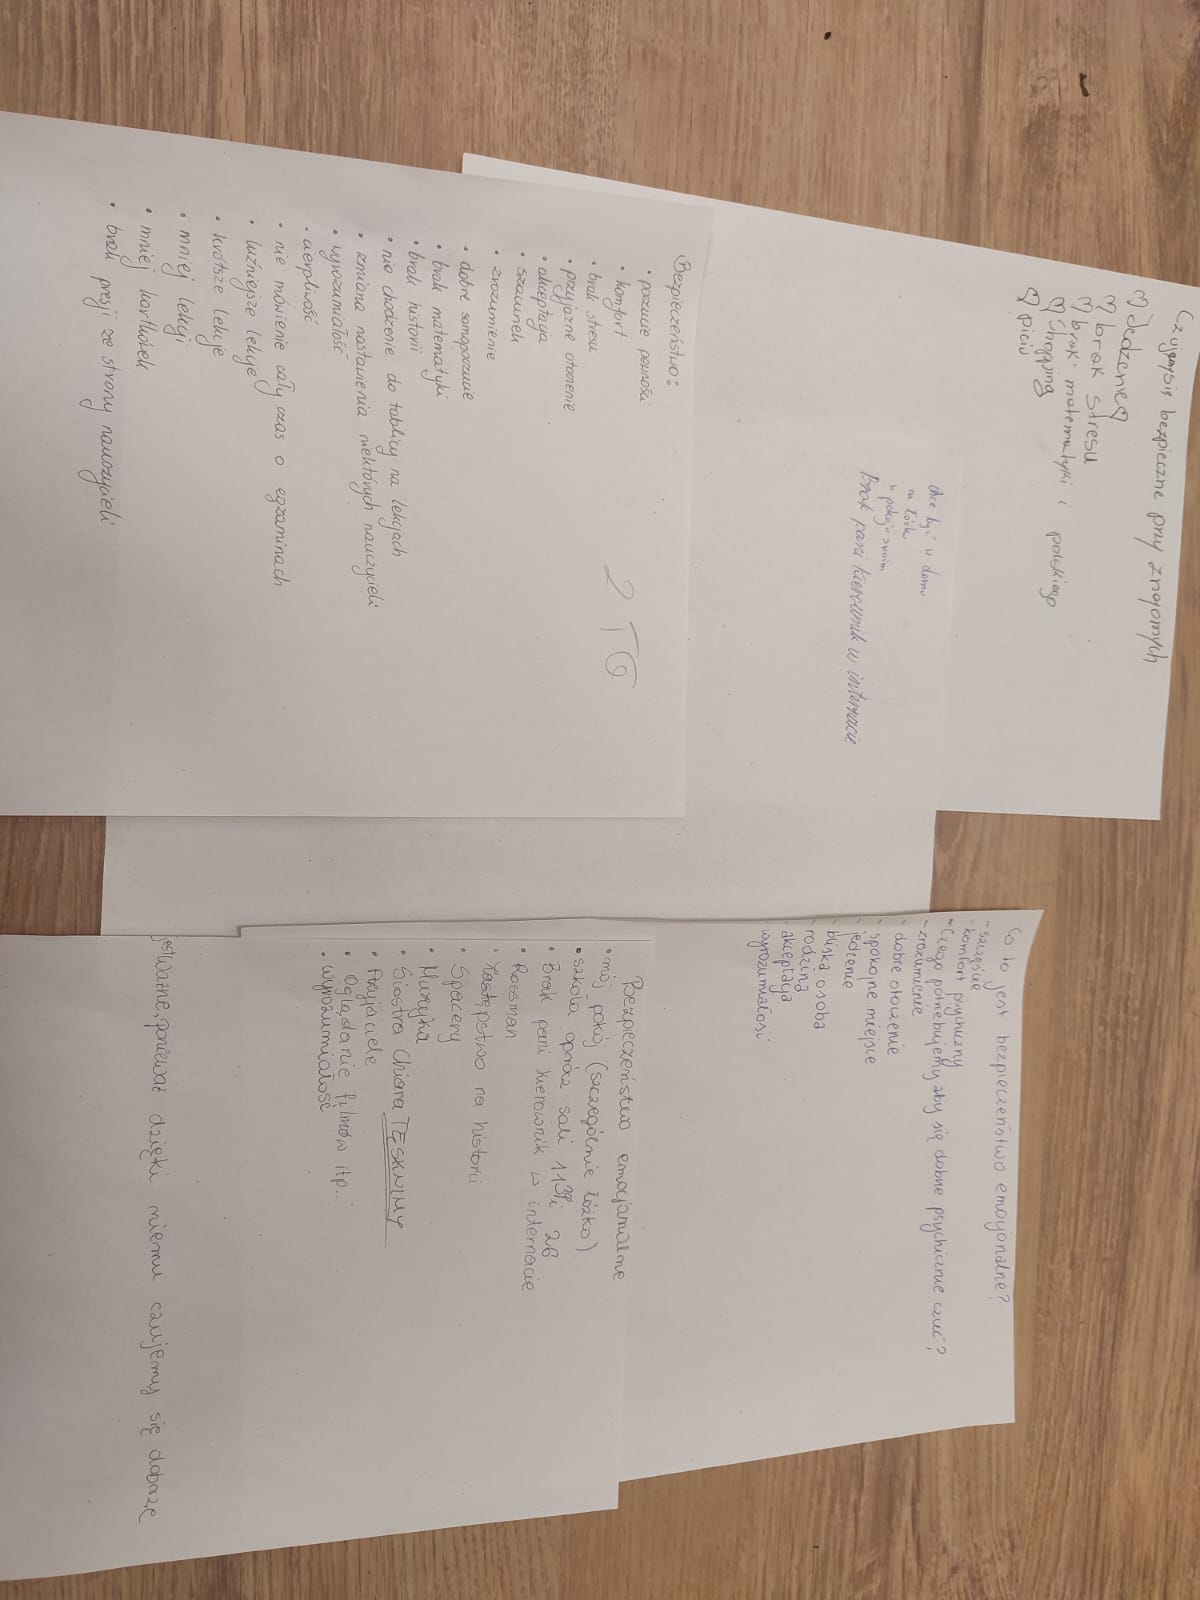 Czujemy się bezpieczne przy znajomych
♡ Jedzenie♡
♡ brak stresu
♡ brak matematyki i polskiego
♡ shopping
♡ piciu
chce być w domu
na łóżk
w pokoju swoim
Brak pani kierownik w internacie
2 TG
Bezpieczeństwo:
• poczucie pewności
• komfort
• brak stresu
• przyjazne otoczenie
• akceptacja
• szacunek
• zrozumienie
• dobre samopoczucie
• brak matematyki
• brak historii
• nie chodzenie do tablicy na lekcjach
• zmiana nastawienia niektórych nauczycieli
• wyrozumiałość
• cierpliwość
• nie mówienie cały czas o egzaminach
• luźniejsze lekcje
• krótsze lekcje
• mniej lekcji
• mniej kartkówek
• brak presji ze strony nauczycieli
Co to jest bezpieczeństwo emocjonalne?
- szczęście
- komfort psychiczny
• Czego potrzebujemy aby się dobrze psychicznie czuć?
- zrozumienie
- dobre otoczenie
- spokojne miejsce
- jedzenie
bliska osoba
rodzina
akceptacja
wyrozumiałość
Bezpieczeństwo emocjonalne
• mój pokój (szczególnie łóżko)
• szkoła oprócz sali 113 i 26
• Brak pani kierownik w internacie
• Rossman
• Zastępstwo na historii
• Spacery
• Muzyka
• Siostra Chiara TĘSKNIMY
• Przyjaciele
• Oglądanie filmów itp...
• wyrozumiałość
jest ważne, ponieważ dzięki niemu czujemy się dobrze